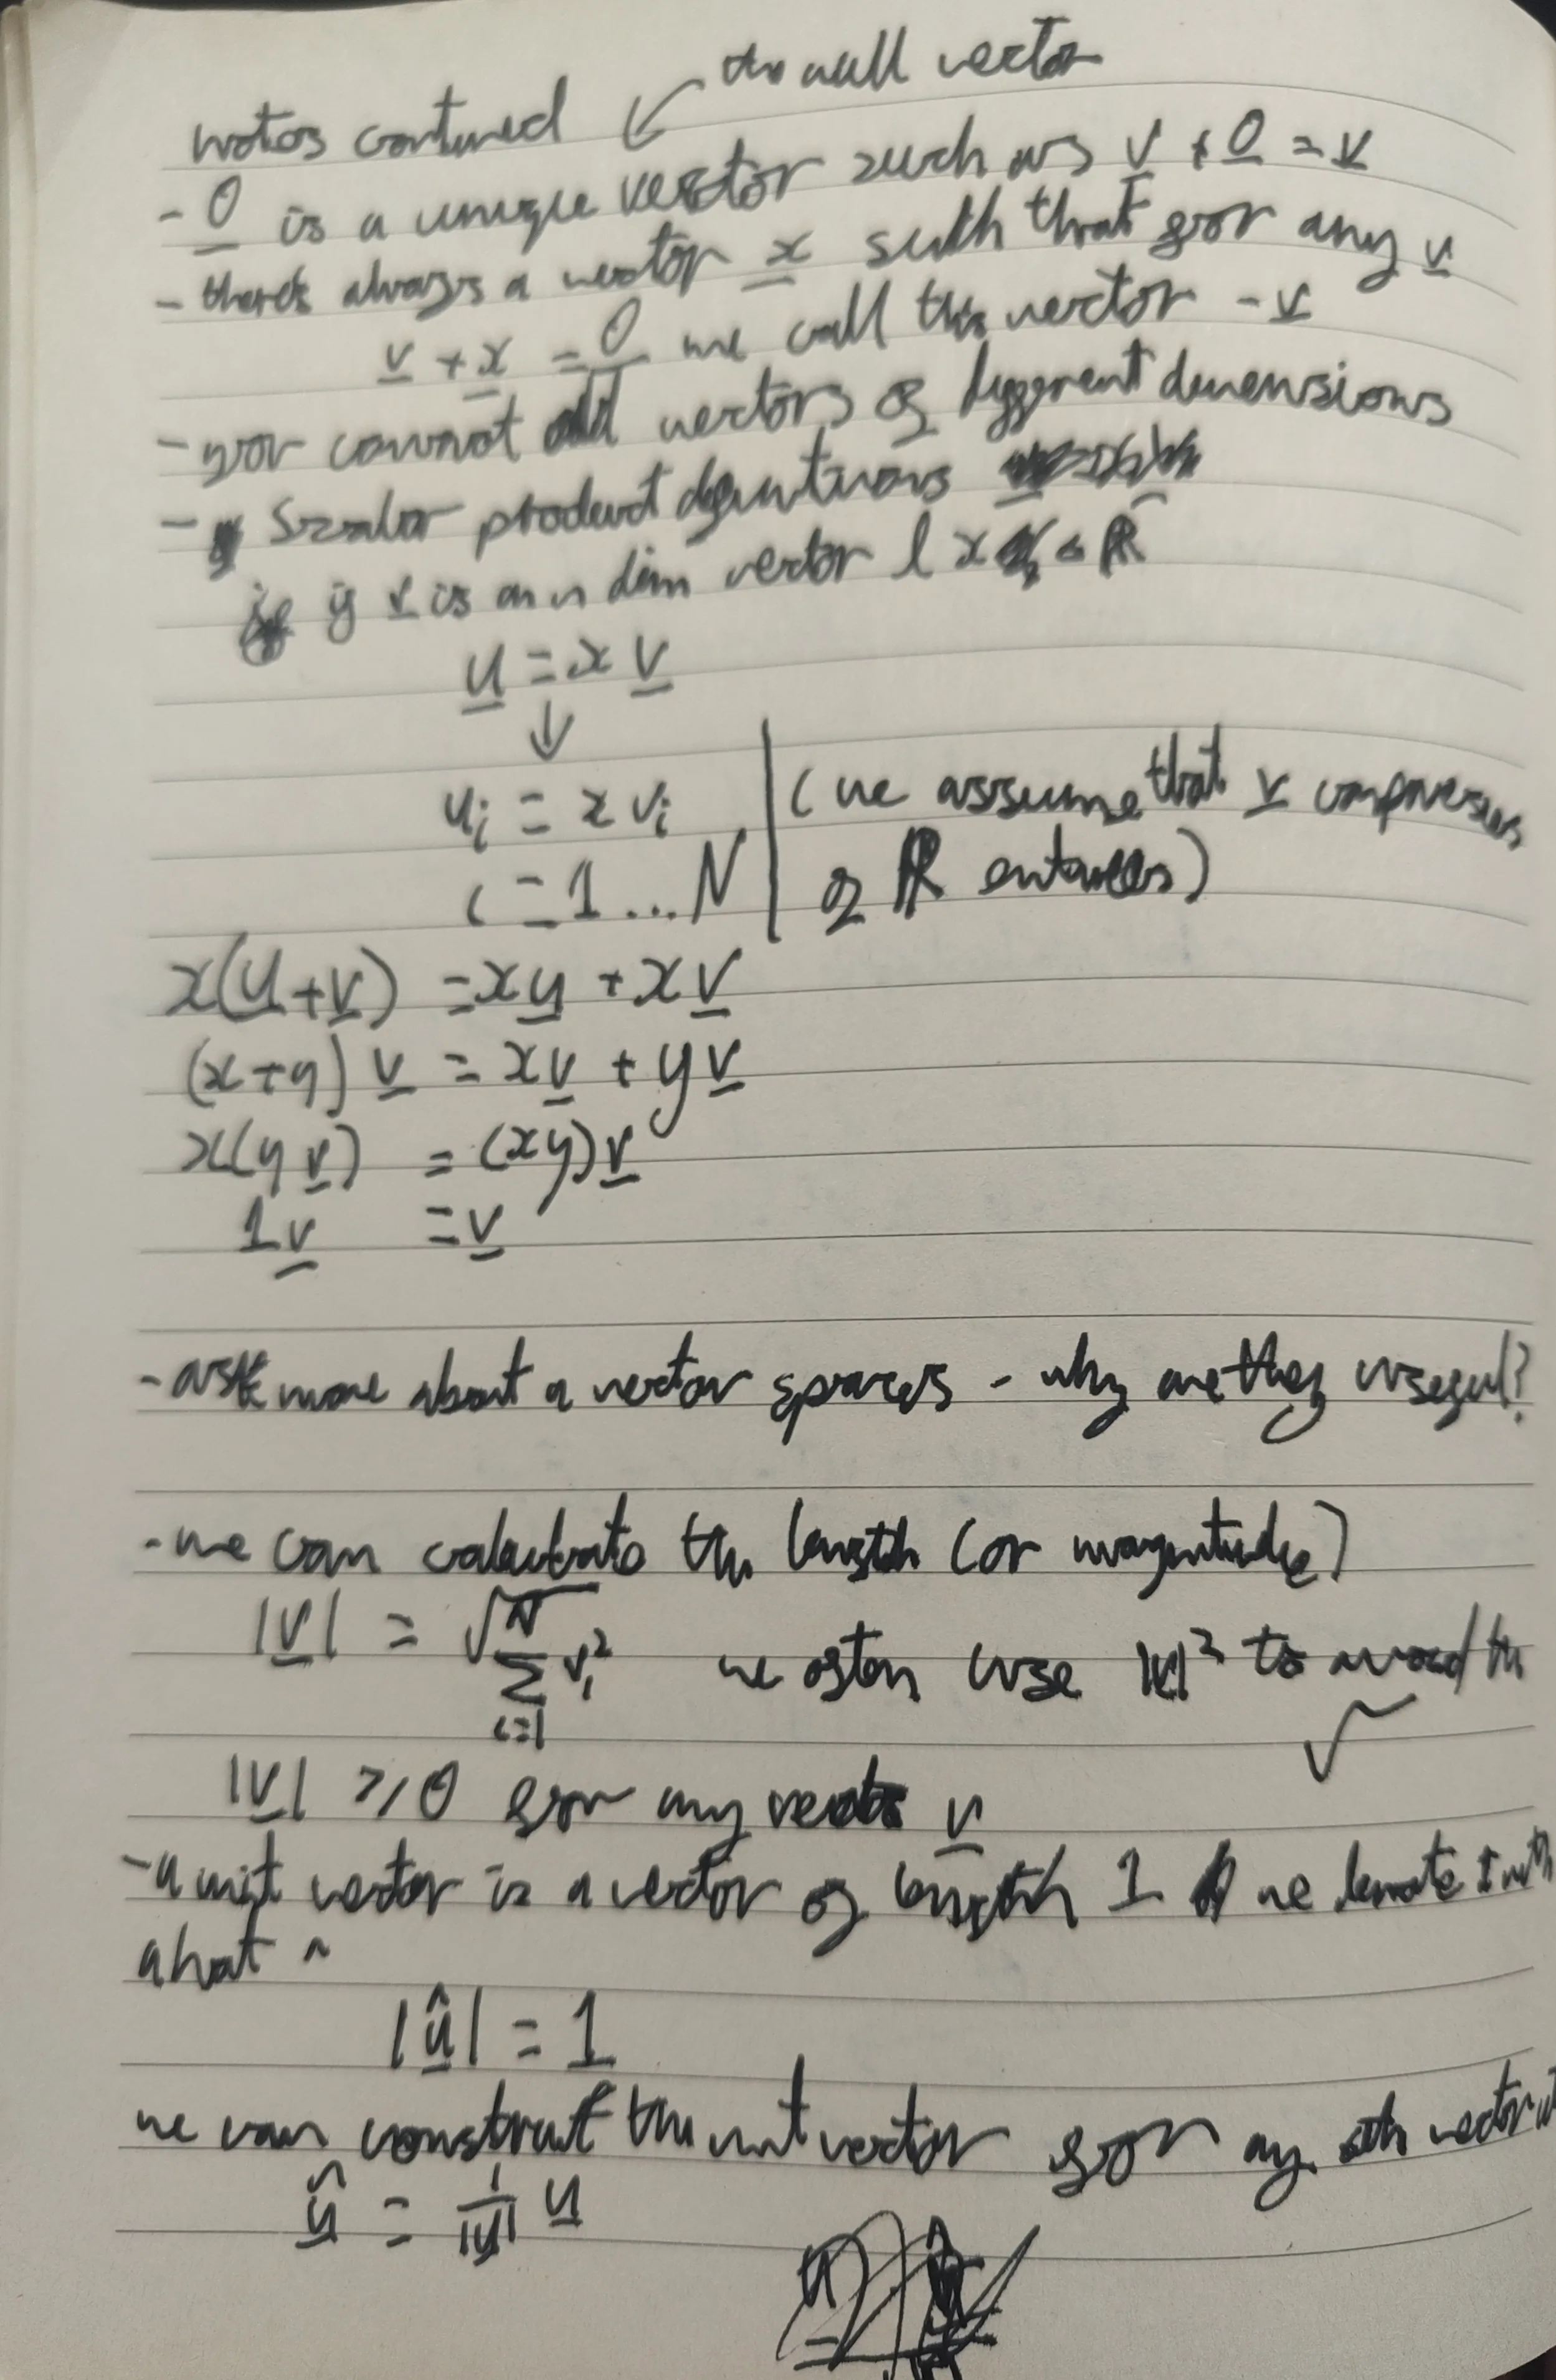 the null vector
notes contined ↙
- 0 is a unique vector such as v + 0 = v
- there's always a vector x such that for any v
v + x = 0 we call this vector - v
- you cannot add vectors of different dimensions
- Scalar product definitions
if v is an n dim vector & x ∈ ℝ
u = x v
↓
ui = x vi | (we assume that v comprises
i = 1 ... N | of ℝ entries)
x(u + v) = xu + xv
(x + y) v = xv + yv
x(y v) = (xy)v
1v = v
- ask more about a vector spaces - why are they useful?
- we can calculate the length (or magnitude)
|v| = √ N ∑ i=1 vi² we often use |v|² to avoid the
√
|v| ≥ 0 for any vector v
- a unit vector is a vector of length 1 we denote it with
a hat ^
|û| = 1
we can construct the unit vector for any vector
û = 1/|u| u